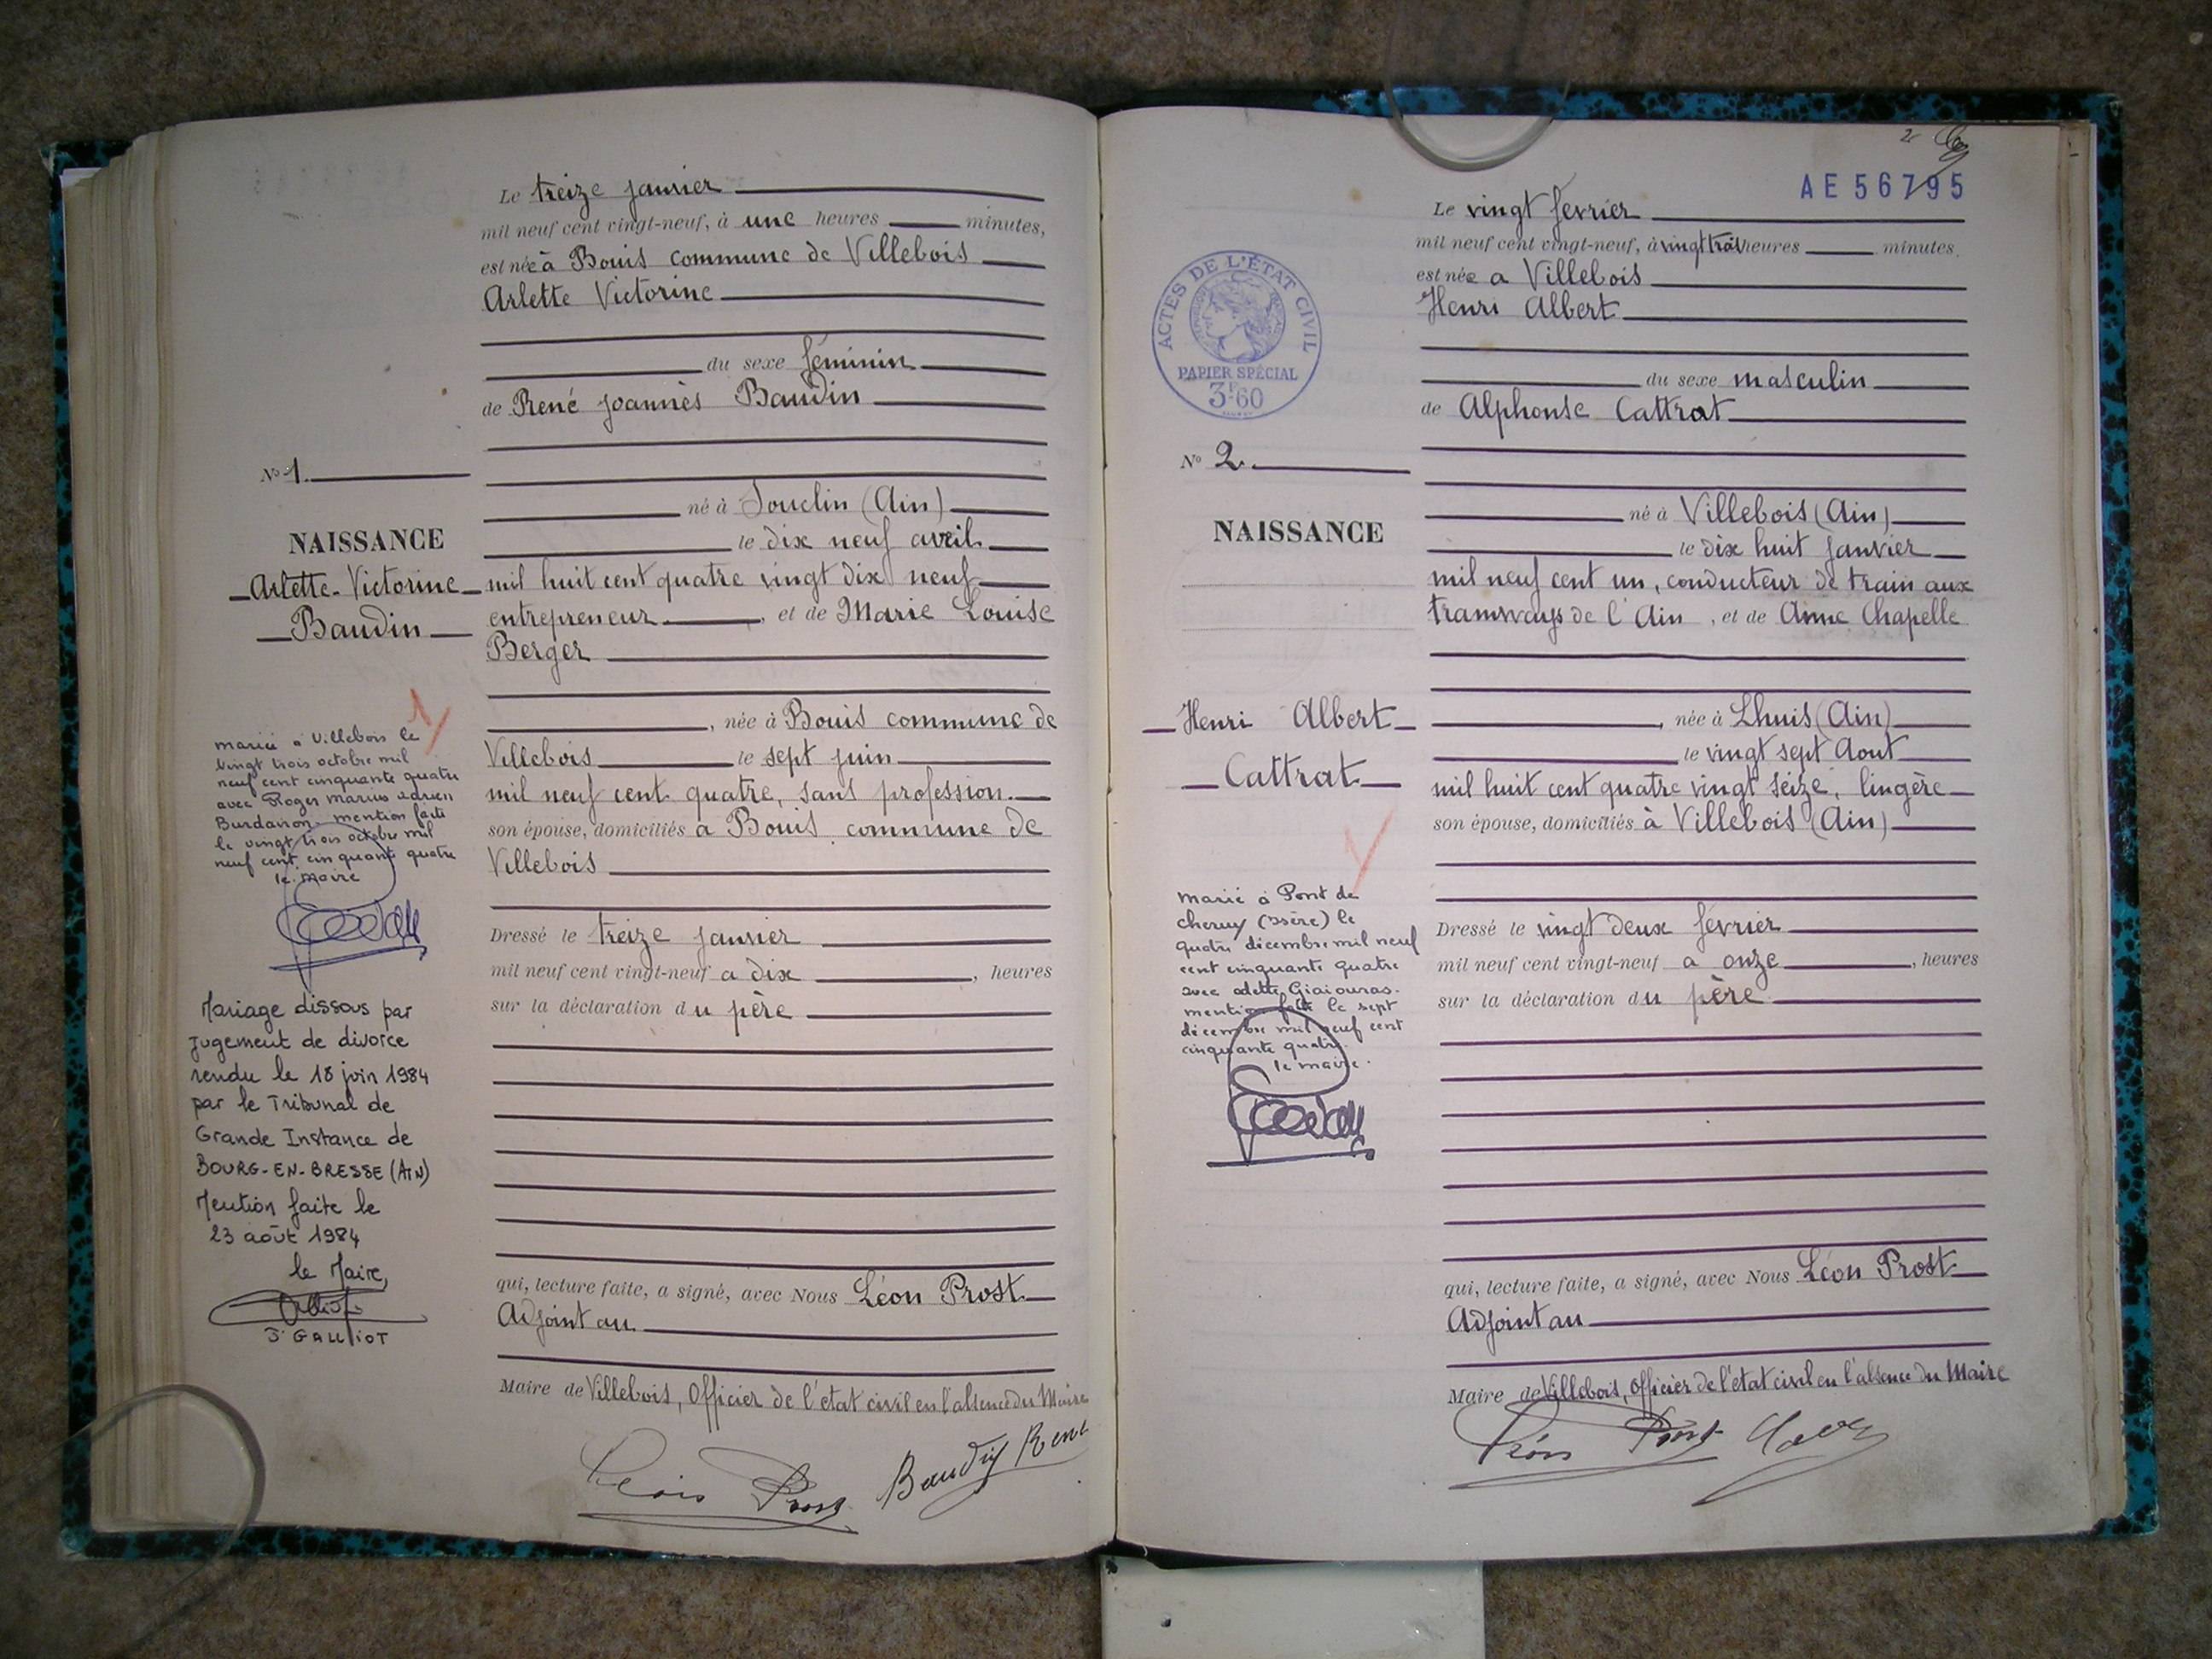 Le treize janvier
mil neuf cent vingt-neuf, à une heures minutes,
est née à Bouis commune de Villebois
Arlette Victorine
du sexe féminin
de René Joannès Baudin
né à Souclin (Ain)
le dix neuf avril
mil huit cent quatre vingt dix neuf
entrepreneur, et de Marie Louise
Berger
, née à Bouis commune de
Villebois le sept juin
mil neuf cent quatre, sans profession.
son épouse, domiciliés à Bouis commune de
Villebois
Dressé le treize janvier
mil neuf cent vingt-neuf a dix, heures
sur la déclaration du père
qui, lecture faite, a signé, avec Nous Léon Prost
Adjoint au
Maire de Villebois, Officier de l'état civil en l'absence du Maire
Léon Prost Baudin René
No 1.
NAISSANCE
Arlette-Victorine
Baudin
1
mariée à Villebois le
vingt trois octobre mil
neuf cent cinquante quatre
avec Roger Marius Adrien
mention faite
le vingt trois octobre mil
neuf cent cinquante quatre
le maire
Mariage dissous par
jugement de divorce
rendu le 18 juin 1984
par le Tribunal de
Grande Instance de
BOURG-EN-BRESSE (AIN)
Mention faite le
23 août 1984
le Maire,
J. GALLIOT
2
AE 56795
Le vingt fevrier
mil neuf cent vingt-neuf, à vingt trois heures minutes.
est née a Villebois
Henri Albert
du sexe masculin
de Alphonse Cattrat
né à Villebois (Ain)
le dix huit Janvier
mil neuf cent un, conducteur de train aux
tramways de l'Ain, et de Anne Chapelle
, née à Lhuis (Ain)
le vingt sept Aout
mil huit cent quatre vingt seize, lingère
son épouse, domiciliés à Villebois (Ain)
Dressé le vingt deux février
mil neuf cent vingt-neuf a onze, heures
sur la déclaration du père
qui, lecture faite, a signé, avec Nous Léon Prost
Adjoint au
Maire de Villebois, Officier de l'état civil en l'absence du Maire
Léon Prost
ACTES DE L'ÉTAT CIVIL
PAPIER SPÉCIAL
3F60
No 2.
NAISSANCE
Henri Albert
Cattrat
marié à Pont de
cheruy (Isère) le
quatre décembre mil neuf
cent cinquante quatre
avec odette Giaiouras.
mention faite le sept
décembre mil neuf cent
cinquante quatre.
le maire.